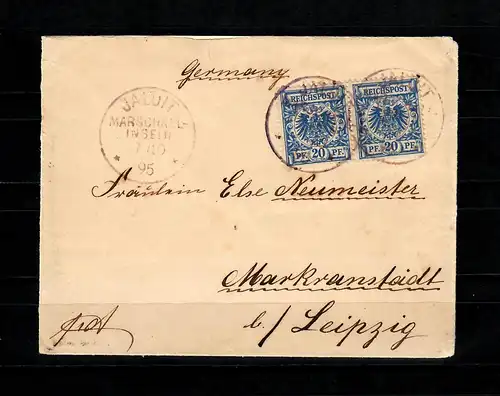 Germany.
JALUIT
MARSCHALL-
INSELN
7/10
95
REICHSPOST
PF. 20 PF.
REICHSPOST
PF. 20 PF.
JALUIT
Fräulein Else Neumeister
Markranstädt
b./ Leipzig